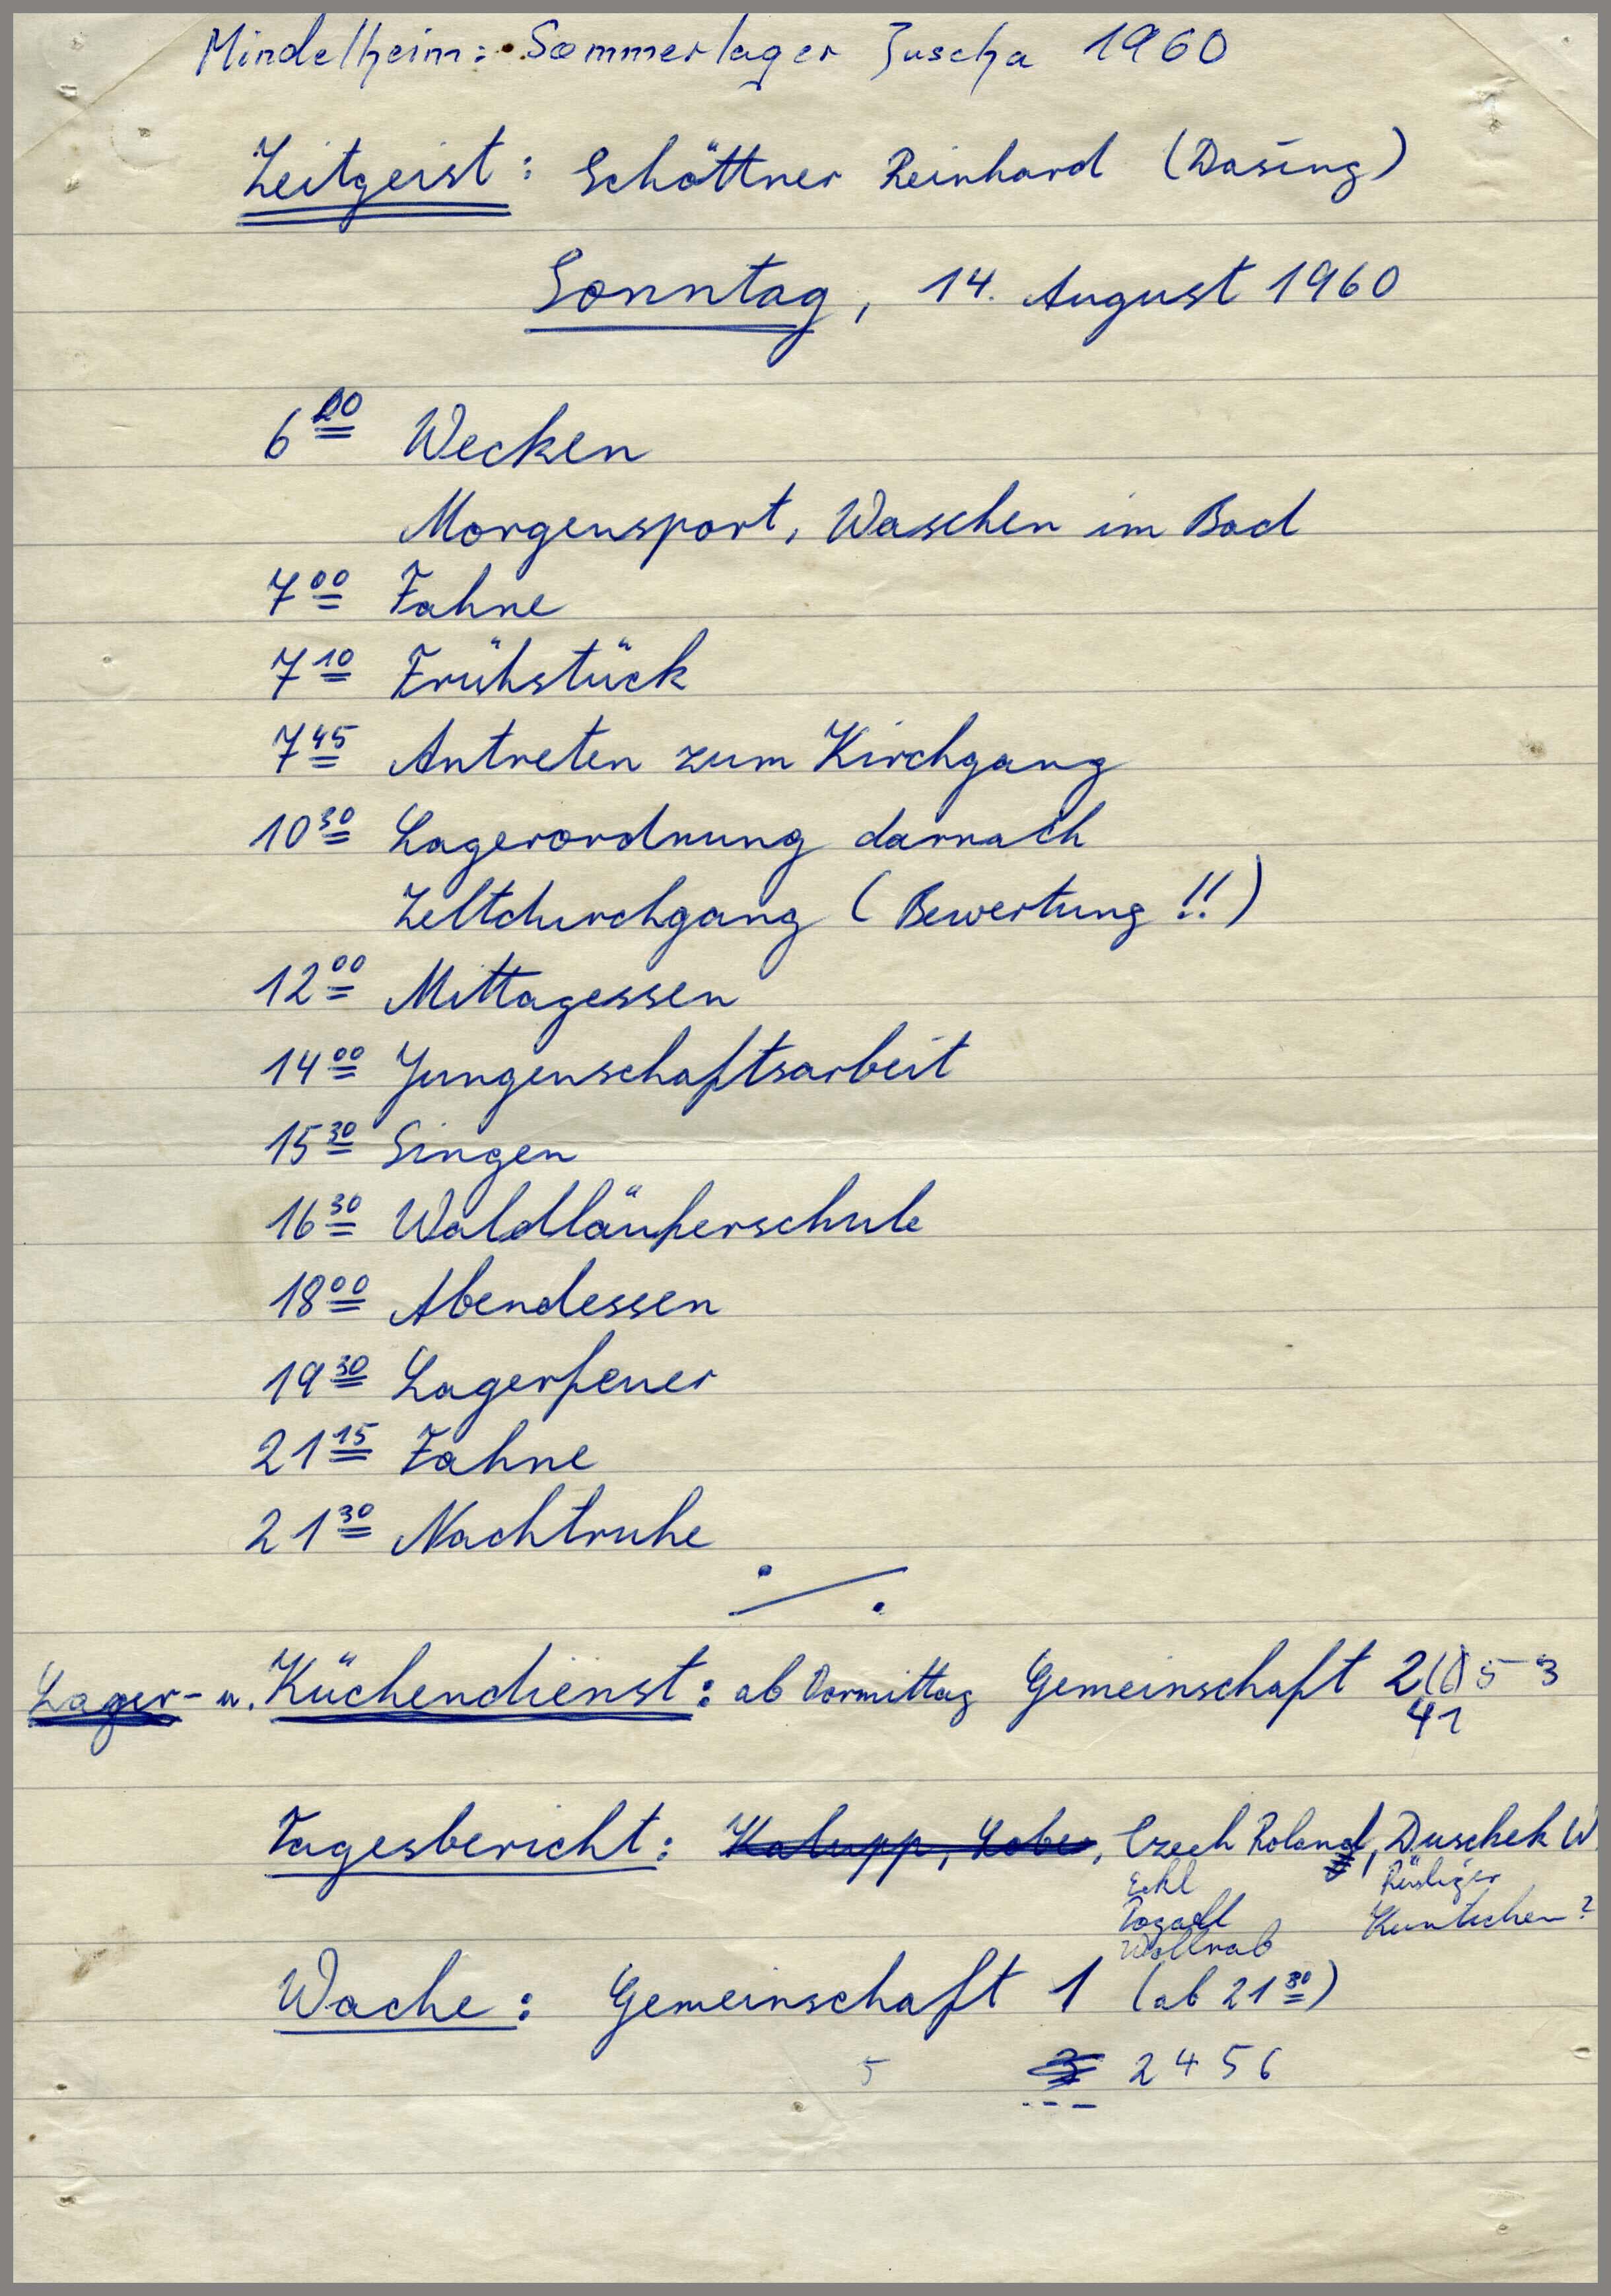 Mindelheim: Sommerlager Juscha 1960
Zeitgeist: Schöttner Reinhard (Dasing)
Sonntag, 14. August 1960
6 00 Wecken
Morgensport, Waschen im Bad
7 00 Fahne
7 10 Frühstück
7 45 Antreten zum Kirchgang
10 30 Lagerordnung darnach
Zeltdurchgang (Bewertung !!)
12 00 Mittagessen
14 00 Jungenschaftsarbeit
15 30 Singen
16 30 Waldläuferschule
18 00 Abendessen
19 30 Lagerfeuer
21 15 Fahne
21 30 Nachtruhe
Lager- u. Küchendienst: ab Vormittag Gemeinschaft 2 (6) 5 3
41
Tagesbericht: Kalupp, Lober, Czech Roland, Duschek W
Eckl Rüdiger
Pozadl
Wollrab
Wache: Gemeinschaft 1 (ab 21 30)
5 3 2 4 5 6